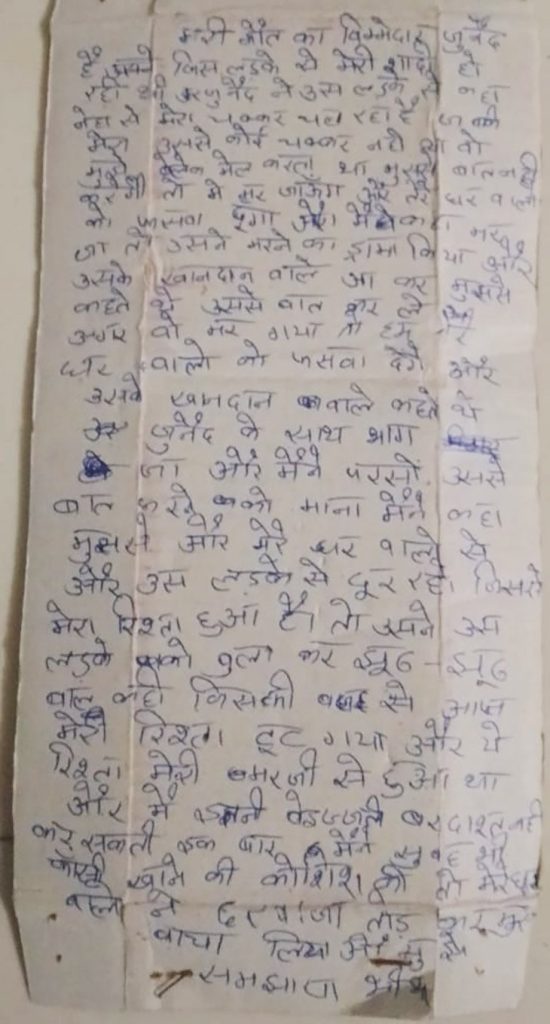 मेरी मौत का जिम्मेदार जुनैद
है उसने जिस लड़के से मेरी शादी हो
रही थी जुनैद ने उस लड़के से कहा
मेरा चक्कर चल रहा है
मेरा उससे कोई चक्कर नही था वो
मेल करता था मुझसे बात नही
तो मे मर जाऊंगा तेरे घर वालो
को फसवा दूगा मेने कहा मर
जा तो उसने मरने का ड्रामा किया और
उसके खानदान वाले आ कर मुझसे
कहते थे उससे बात कर
अगर वो मर गया तो हम तेरे
घर वालो को फसवा देगे और
उसके खानदान वाले कहते थे
जुनैद के साथ भाग
जा और मैने परसों उससे
बात करने को माना मैने कहा
मुझसे और मेरे घर वालो से
और उस लड़के से दूर रहो जिससे
मेरा रिश्ता हुआ है। तो उसने उस
लड़के को बुला कर झूठ-झूठ
बात कही जिसकी वजह से आज
मेरा रिश्ता टूट गया और ये
रिश्ता मेरी मरजी से हुआ था
और मैं इतनी बेइज्जती बरदाश्त नही
कर सकती एक बार मैने
खाने की कोशिश की तो मेरे घर
वालो ने दरवाजा तोड़ कर मुझे
बाचा लिया और मुझे
समझाया भी